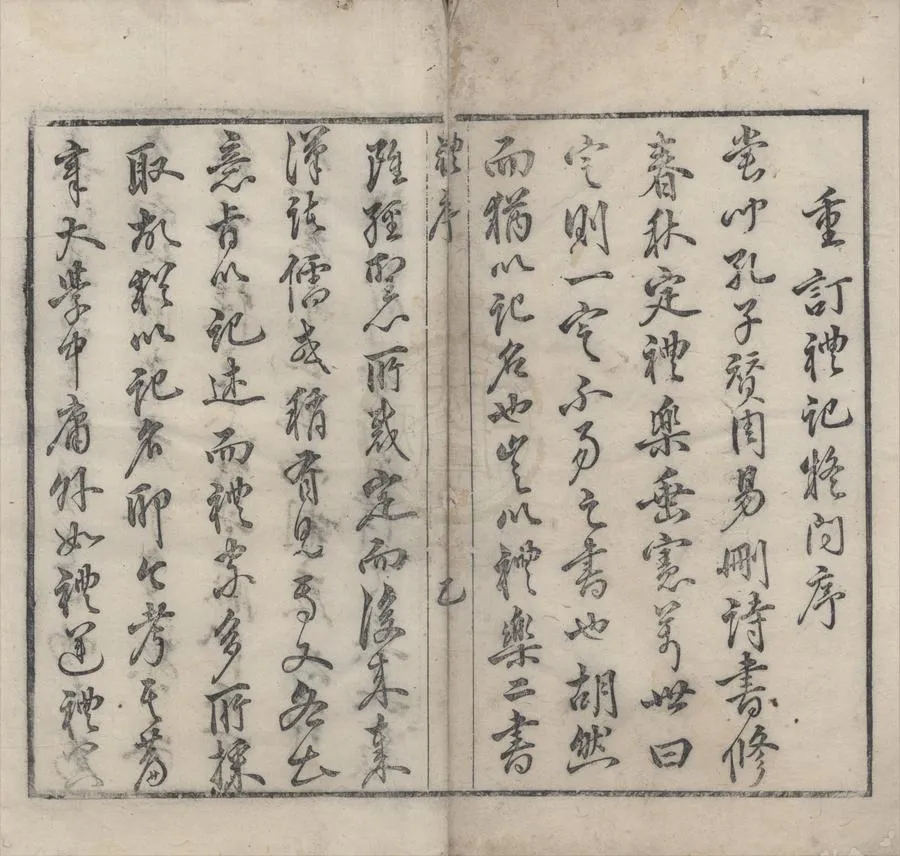 重訂禮記疑問序
嘗聞孔子贊周易刪詩書修
春秋定禮樂垂憲萬世曰
定則一定不易之書也胡然
而猶以記名也豈以禮樂二書
禮序
乙
雖經聖人所裁定而後來秦
漢諸儒或稍有見焉又各出
意旨以記述而禮家多所採
取故猶以記名耶今考其篇
章大學中庸外如禮運禮